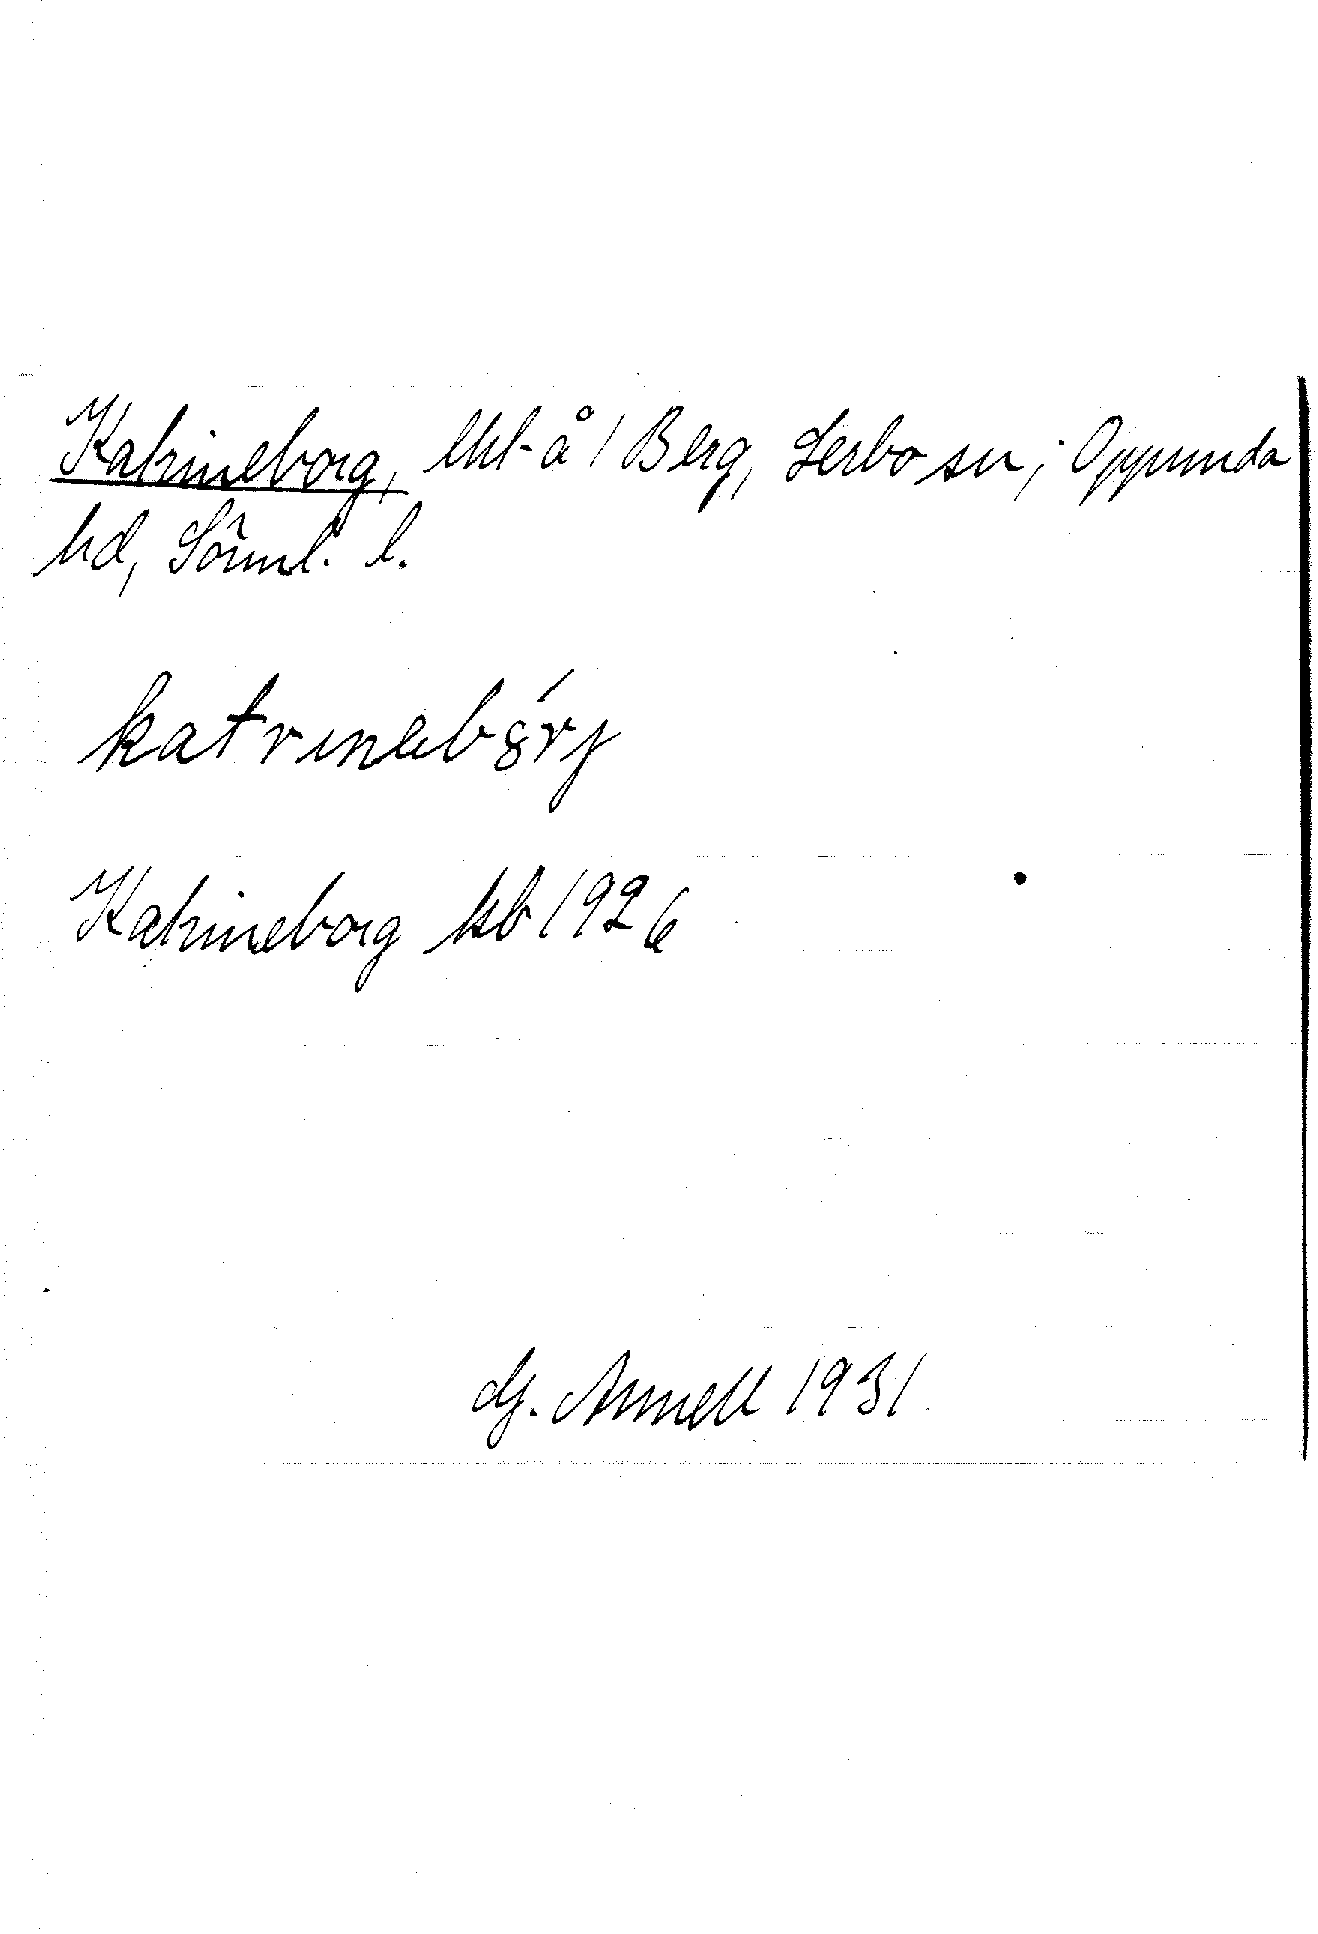 Katrineborg, lht å 1 Berg, Lerbo sn, Oppunda
hd, Sörml. l.
katrinebȣ́rj
Katrineborg kb 1926
Hj. Annell 1931